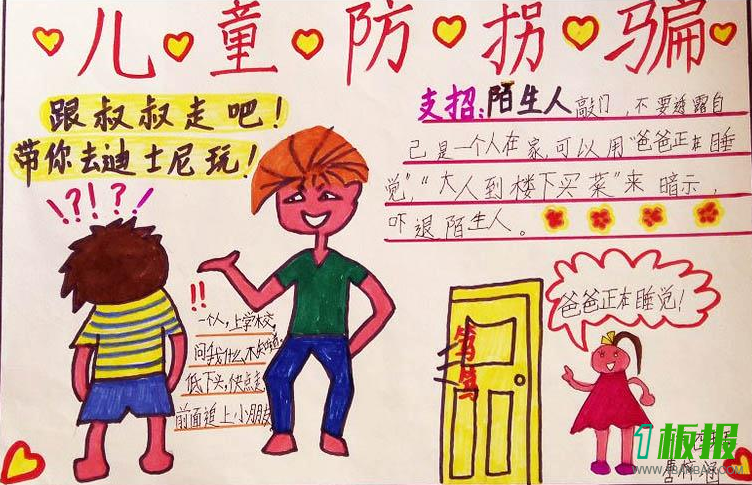 儿童防拐骗
跟叔叔走吧！
带你去迪士尼玩！
\?!?!
支招:陌生人敲门，不要透露自
己是一个人在家,可以用“爸爸正在睡
觉”,“大人到楼下买菜”来暗示,
吓退陌生人。
!!
一个人,上学校,
问我什么,不知道,
低下头,快点走,
前面追上小朋友
爸爸正在睡觉!
1板报
WWW.1BANBAO.COM